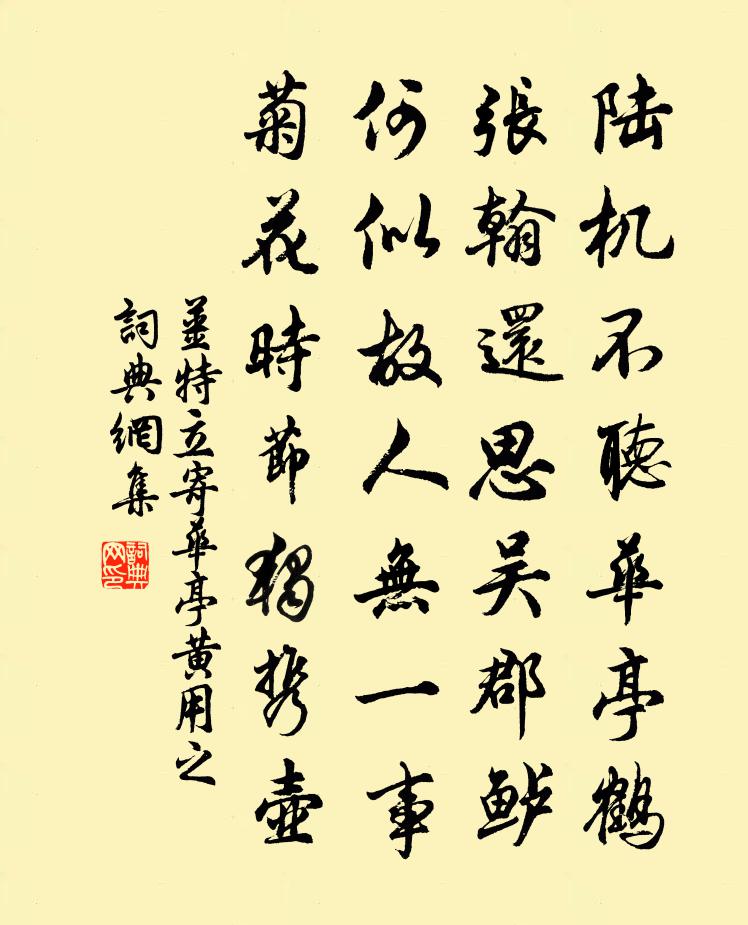 陆机不聽華亭鶴
張翰還思吴郡鲈
何似故人無一事
菊花時節獨携壺
薑特立寄華亭黄用之
詞典網集
詞典网印